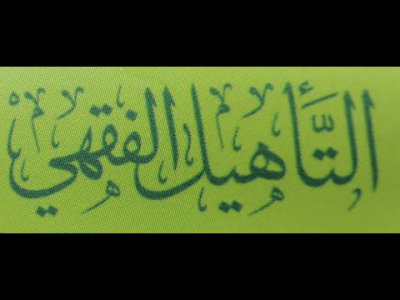 التَّأهيل الفقهي